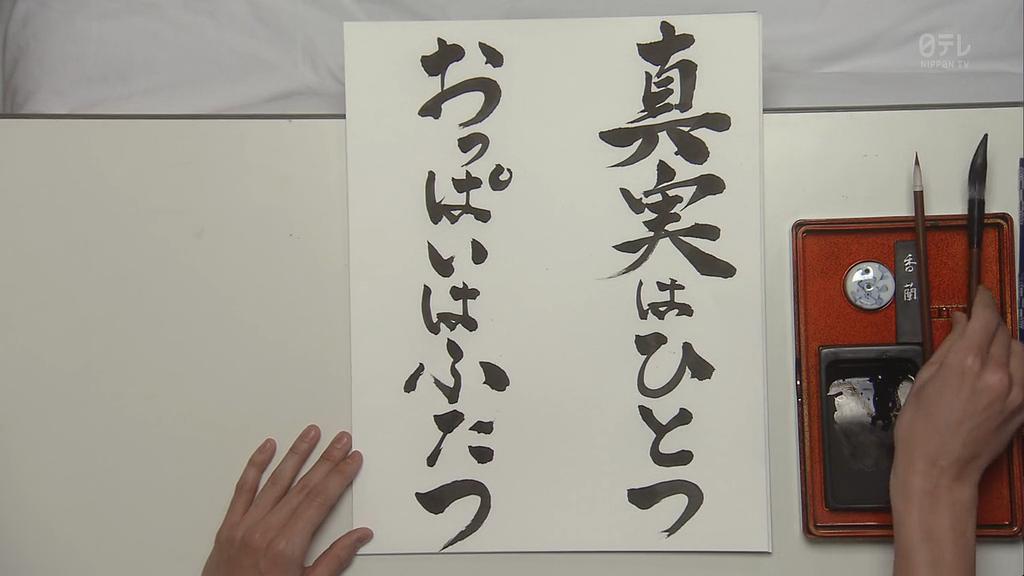 真実はひとつ
おっぱいはふたつ
香蘭
日テレ
NIPPON TV